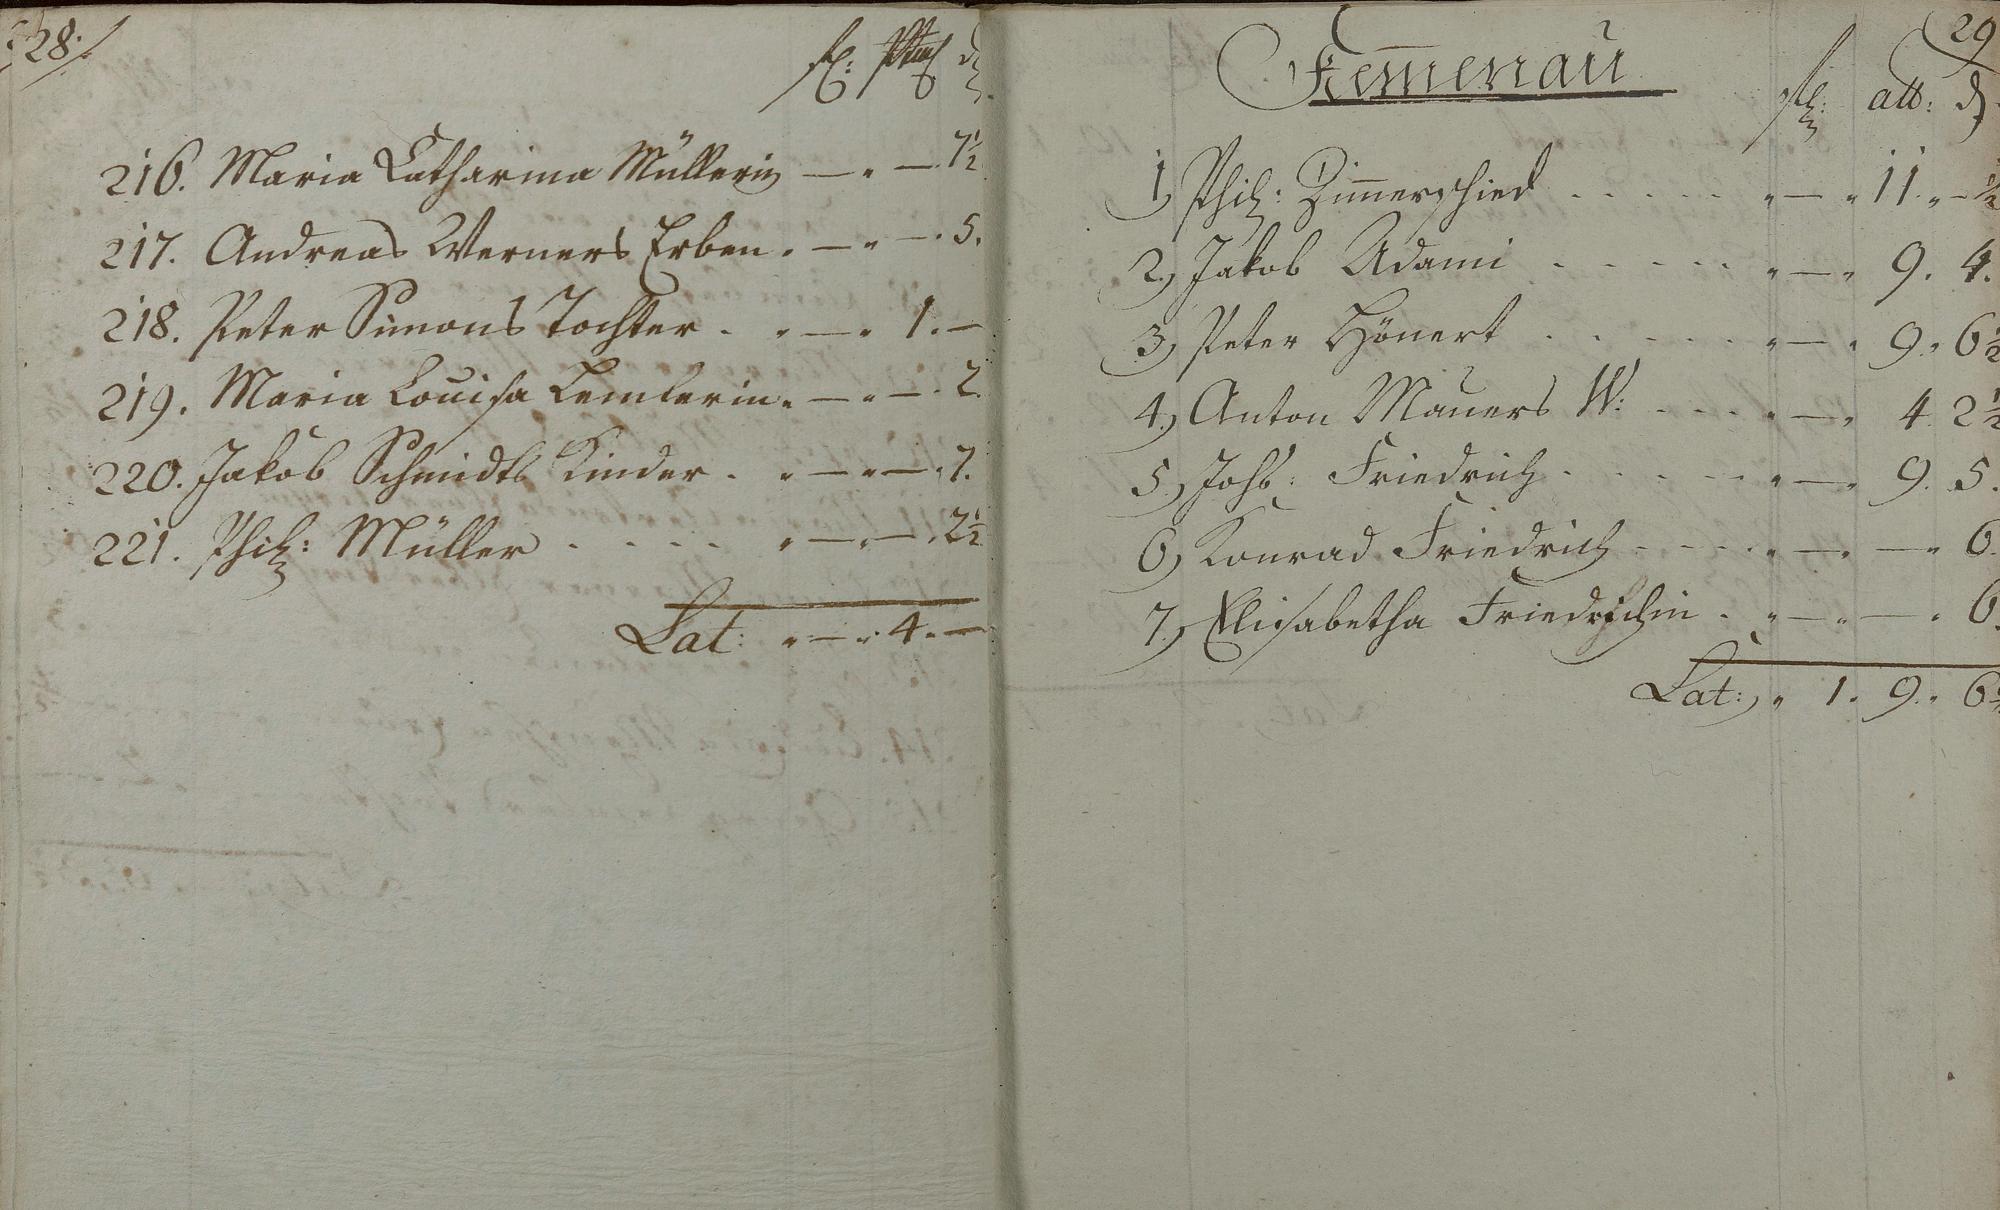 28.
fl: d
216. Maria Catharina Müllerin — " — . 7½
217. Andreas Werners Erben . — " — . 5.
218. Peter Simons Tochter . " — " 1. —
219. Maria Louisa Lemlerin " — " — . 2.
220. Jakob Schmidts Kinder . " — " — . 7.
221. Phil: Müller . . . . " — " — . 2½
Lat: " — " 4. —
29
Kem̅enau
fl: alb: d
1, Phil: Zim̅erschied . . . . . " — " 11. " — ½
2, Jakob Adami - - - - - " — " 9. 4.
3, Peter Hönert . . . . . " — " 9. 6½
4, Anton Mauers W: - - - " — " 4 2½
5, Joh: Friedrich - - - - - " — " 9. 5.
6, Konrad Friedrich - - - - " — " — " 6.
7, Elisabetha Friedrichin . " — " — " 6.
Lat: " 1. 9. 6½